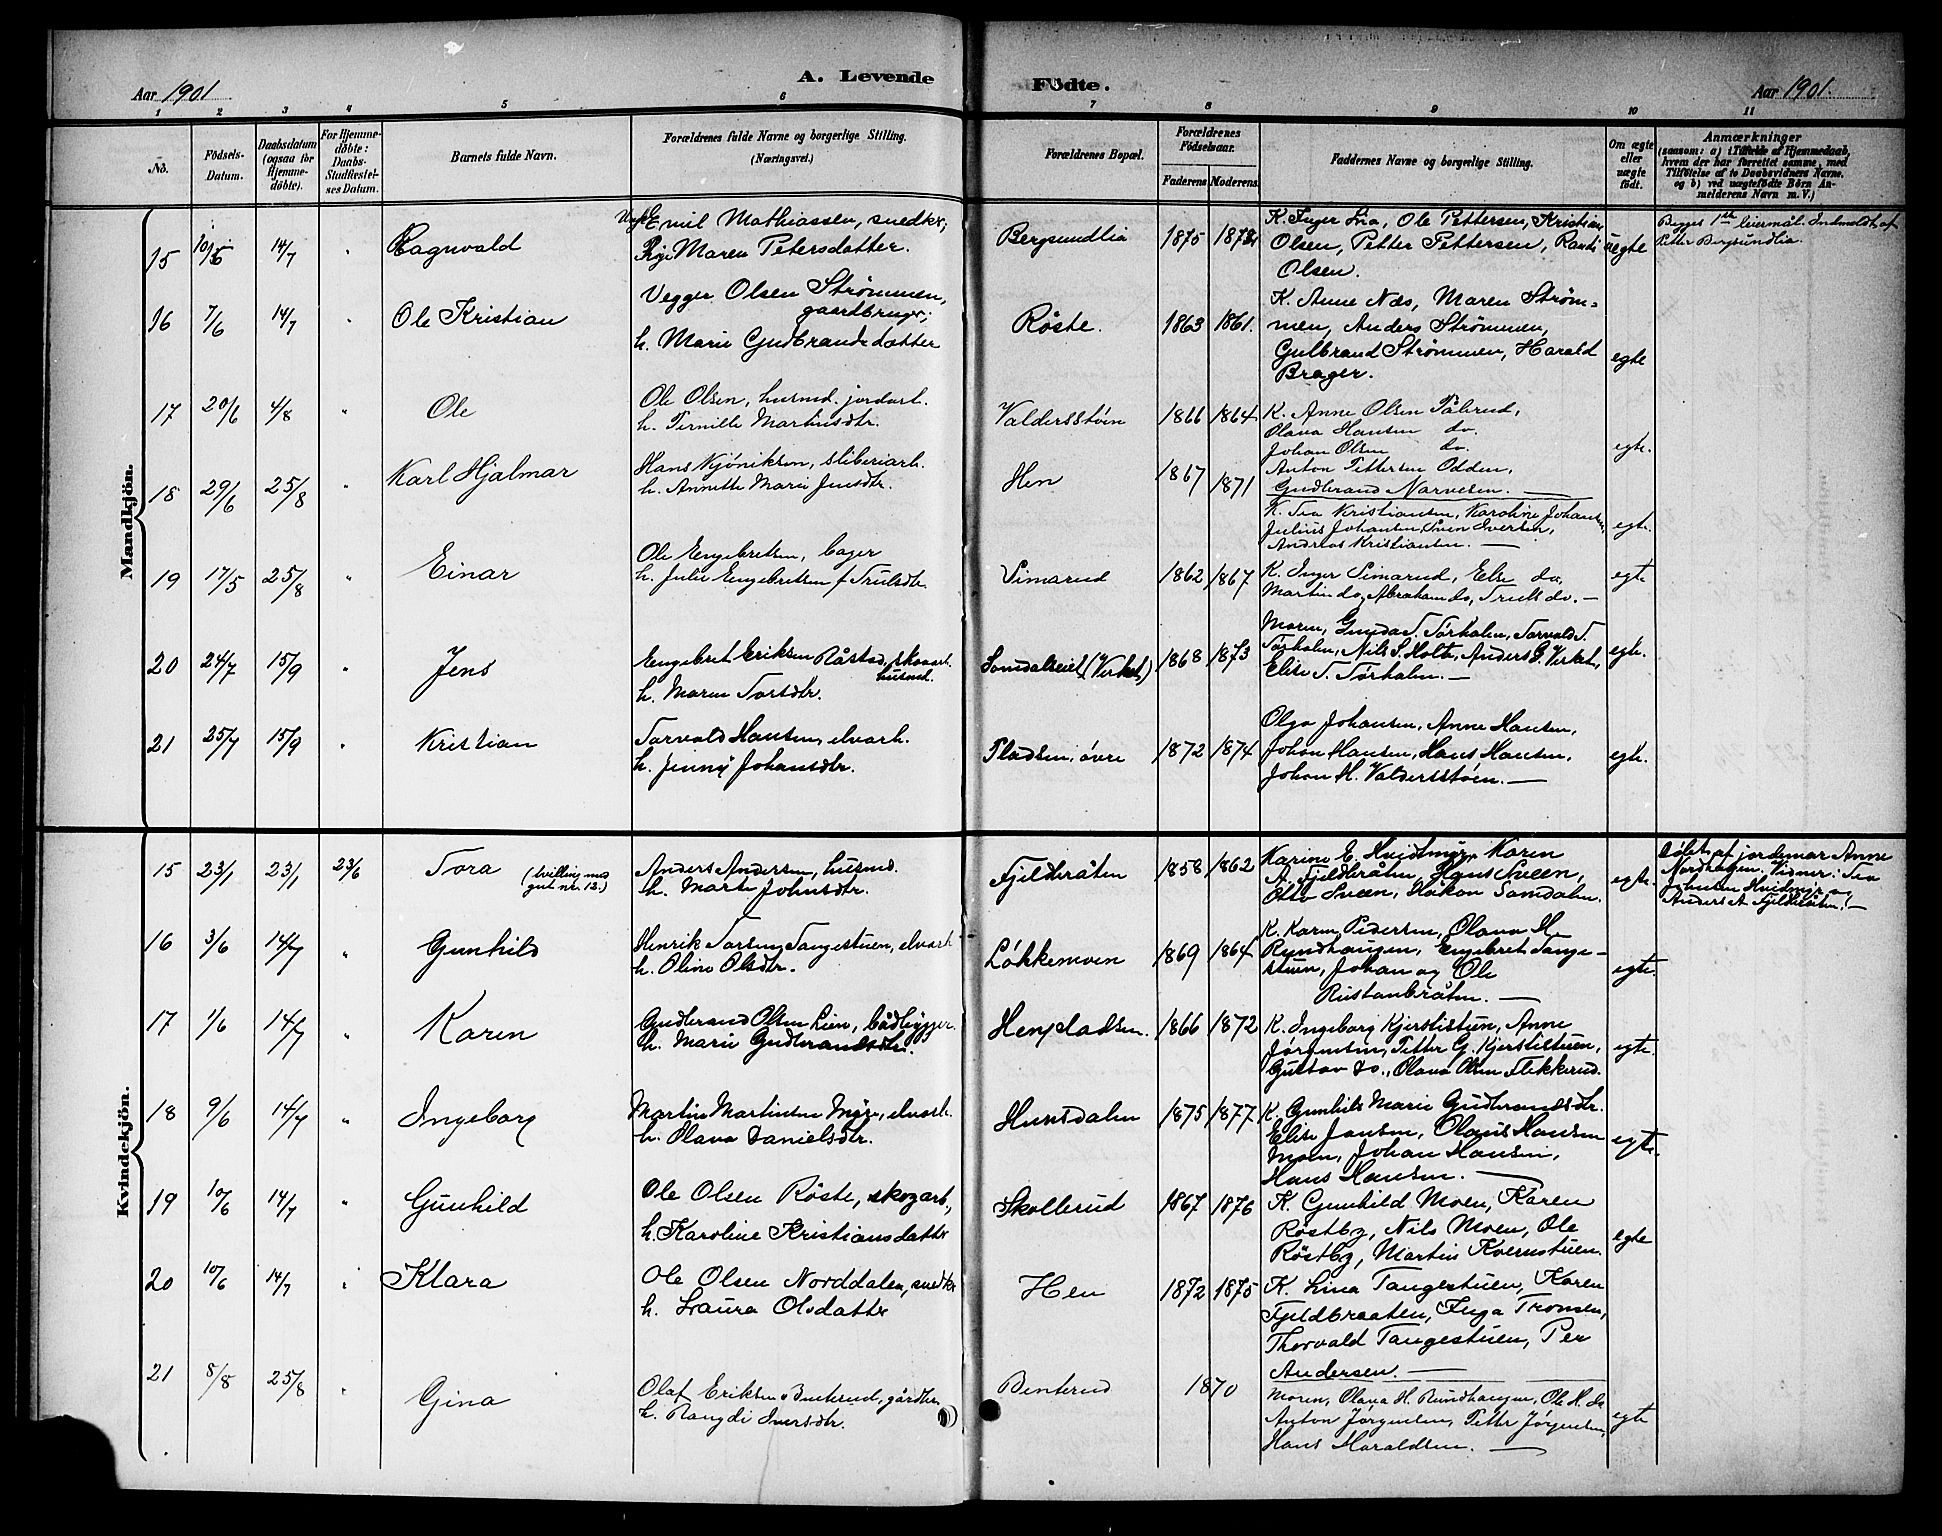 A. Levende Fødte.
Aar 1901
Aar 1901.
1 2 3 4 5 6 7 8 9 10 11
No.
Fødsels-Datum.
Daabsdatum (ogsaa for Hjemmedøbte).
For Hjemmedøbte: Daabs-Stadfæstelses Datum.
Barnets fulde Navn.
Forældrenes fulde Navne og borgerlige Stilling.
(Næringsvei.)
Forældrenes Bopæl.
Forældrenes Fødselsaar.
Faderens. Moderens.
Faddernes Navne og borgerlige Stilling.
Om ægte eller uægte født.
Anmærkninger
(saasom: a) i Tilfælde af Hjemmedaab,
hvem der har forrettet samme, med
Tilføielse af to Daabsvidners Navne.
og b) ved uægtefødte Børn Anmelderens Navn m.V.)
Mandkjøn.
15 14/7 " Ragnvald
Emil Mathiassen, snedker,
Pige Maren Petersdatter.
Bergsundlia 1875
K. Inger Lia, Ole Pettersen, Kristian
Olsen, Petter Pettersen, Randi
Olsen.
uegte
Begges 1ste leiermål. Indmeldt af
Petter Bergsundlia.
16 7/6 14/7 " Ole Kristian
Vegger Olsen Strømmen,
gaardbruger,
h. Marie Gudbrandsdatter
Røste. 1863 1861.
K. Anne Næs, Maren Strøm-
men, Anders Strømmen,
Gulbrand Strømmen, Harald
Brager.
egte
17 20/6 4/8 " Ole
Ole Olsen, husmd. jordarb.
h. Pernille Martinsdtr.
Valdersstøen 1866 1864
K. Anne Olsen Pålerud,
Olava Hansen do.
Johan Olsen do.
Anton Pettersen Odden,
Gudbrand Narvesen. —
egte.
18 29/6 25/8 " Karl Hjalmar
Hans Kjøniksen, sliberiarb.
h. Annette Marie Jensdtr.
Hen 1867 1871
K. Tea Kristiansen, Karoline Johansen,
Julius Johansen, Sven Iversen,
Andreas Kristiansen. —
egte.
19 17/5 25/8 " Einar
Ole Engebretsen, bager
h. Julie Engebretsen f. Trulsdtr.
Simarud 1862 1867
K. Inger Simarud, Else do,
Martin do, Abraham do, Truls do. —
egte
20 24/7 15/9 " Jens
Engebret Eriksen Råstad, skovarb.
husmd.
h. Maren Torsdtr.
Somdalseiet (Verket) 1868 1873
Moren, Gunda T. Tørhalm, Torvald T.
Tørhalm, Nils S. Holte, Anders G. Verket,
Elise T. Tørhalm. —
egte.
21 25/7 15/9 " Kristian
Torvald Hansen, elvarb.
h. Jenny Johansdtr.
Pladsen, øvre 1872 1874
Olga Johansen, Anne Hansen,
Johan Hansen, Hans Hansen,
Johan H. Valdersstøen. —
egte.
Kvindekjøn.
15 23/1 23/1 23/6 Tora (tvilling med
gut nr. 12.)
Anders Andersen, husmd.
h. Marte Johnsdtr.
Fjeldbråten 1858 1862
Karine E. Hvidmyr, Karen
A. Fjeldbråten, Hans Sveen,
Otto Sveen, Håkon Somdalen.
egte.
Døbt af jordemor Anne
Nordhagen. Vidner: Tea
Johnsen Hvidmyr og
Anders A. Fjeldbråten. —
16 3/6 14/7 " Gunhild
Henrik Torsen Tangestuen, elvarb.
h. Oline Olsdtr.
Løkkemoen 1869 1864
K. Karen Pedersen, Olava H.
Rundhaugen, Engebret Tange-
stuen, Johan og Ole
Rustanbråten. —
egte.
17 1/6 14/7 " Karen
Gudbrand Olsen Lien, bådbygger
h. Marie Gudbrandsdtr.
Henpladsen. 1866 1872
K. Ingeborg Kjerstistuen, Anne
Jørgensen, Petter G. Kjerstistuen,
Gustav do., Olava Olsen Flekkerud.
egte.
18 9/6 14/7 " Ingeborg
Martin Martinsen Myre, elvarb.
h. Olava Danielsdtr.
Hensdalen 1875 1877
K. Gunhild Marie Gudbrandsdtr.
Elise Jansen, Olaus Hansen
Moen, Johan Hansen,
Hans Hansen. —
egte.
19 10/6 14/7 " Gunhild
Ole Olsen Røste, skogarb.,
h. Karoline Kristiansdatter
Skollerud 1867 1876
K. Gunhild Moen, Karen
Røstby, Nils Moen, Ole
Røstby, Martin Kvernstuen.
egte
20 10/6 14/7 " Klara
Ole Olsen Norddalen, snedker
h. Laura Olsdatter
Hen 1872 1875
K. Lina Tangestuen, Karen
Fjeldbraaten, Inga Tronsen,
Thorvald Tangestuen, Per
Andersen. —
21 8/8 25/8 " Gina
Olaf Eriksen Benterud, gårdbr.
h. Rangdi Iversdtr.
Benterud 1870
Moren, Olava H. Rundhaugen, Ole H. do
Anton Jørgensen, Petter Jørgensen,
Hans Haraldsen. —
egte